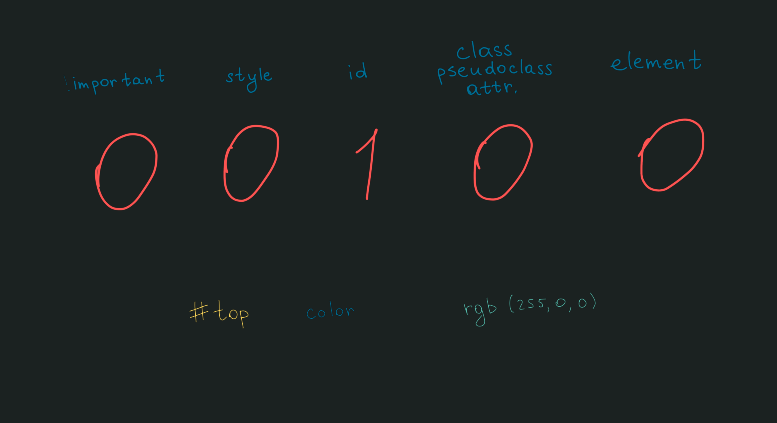 !important
style
id
class
pseudoclass
attr.
element
0 0 1 0 0
#top color rgb (255, 0, 0)